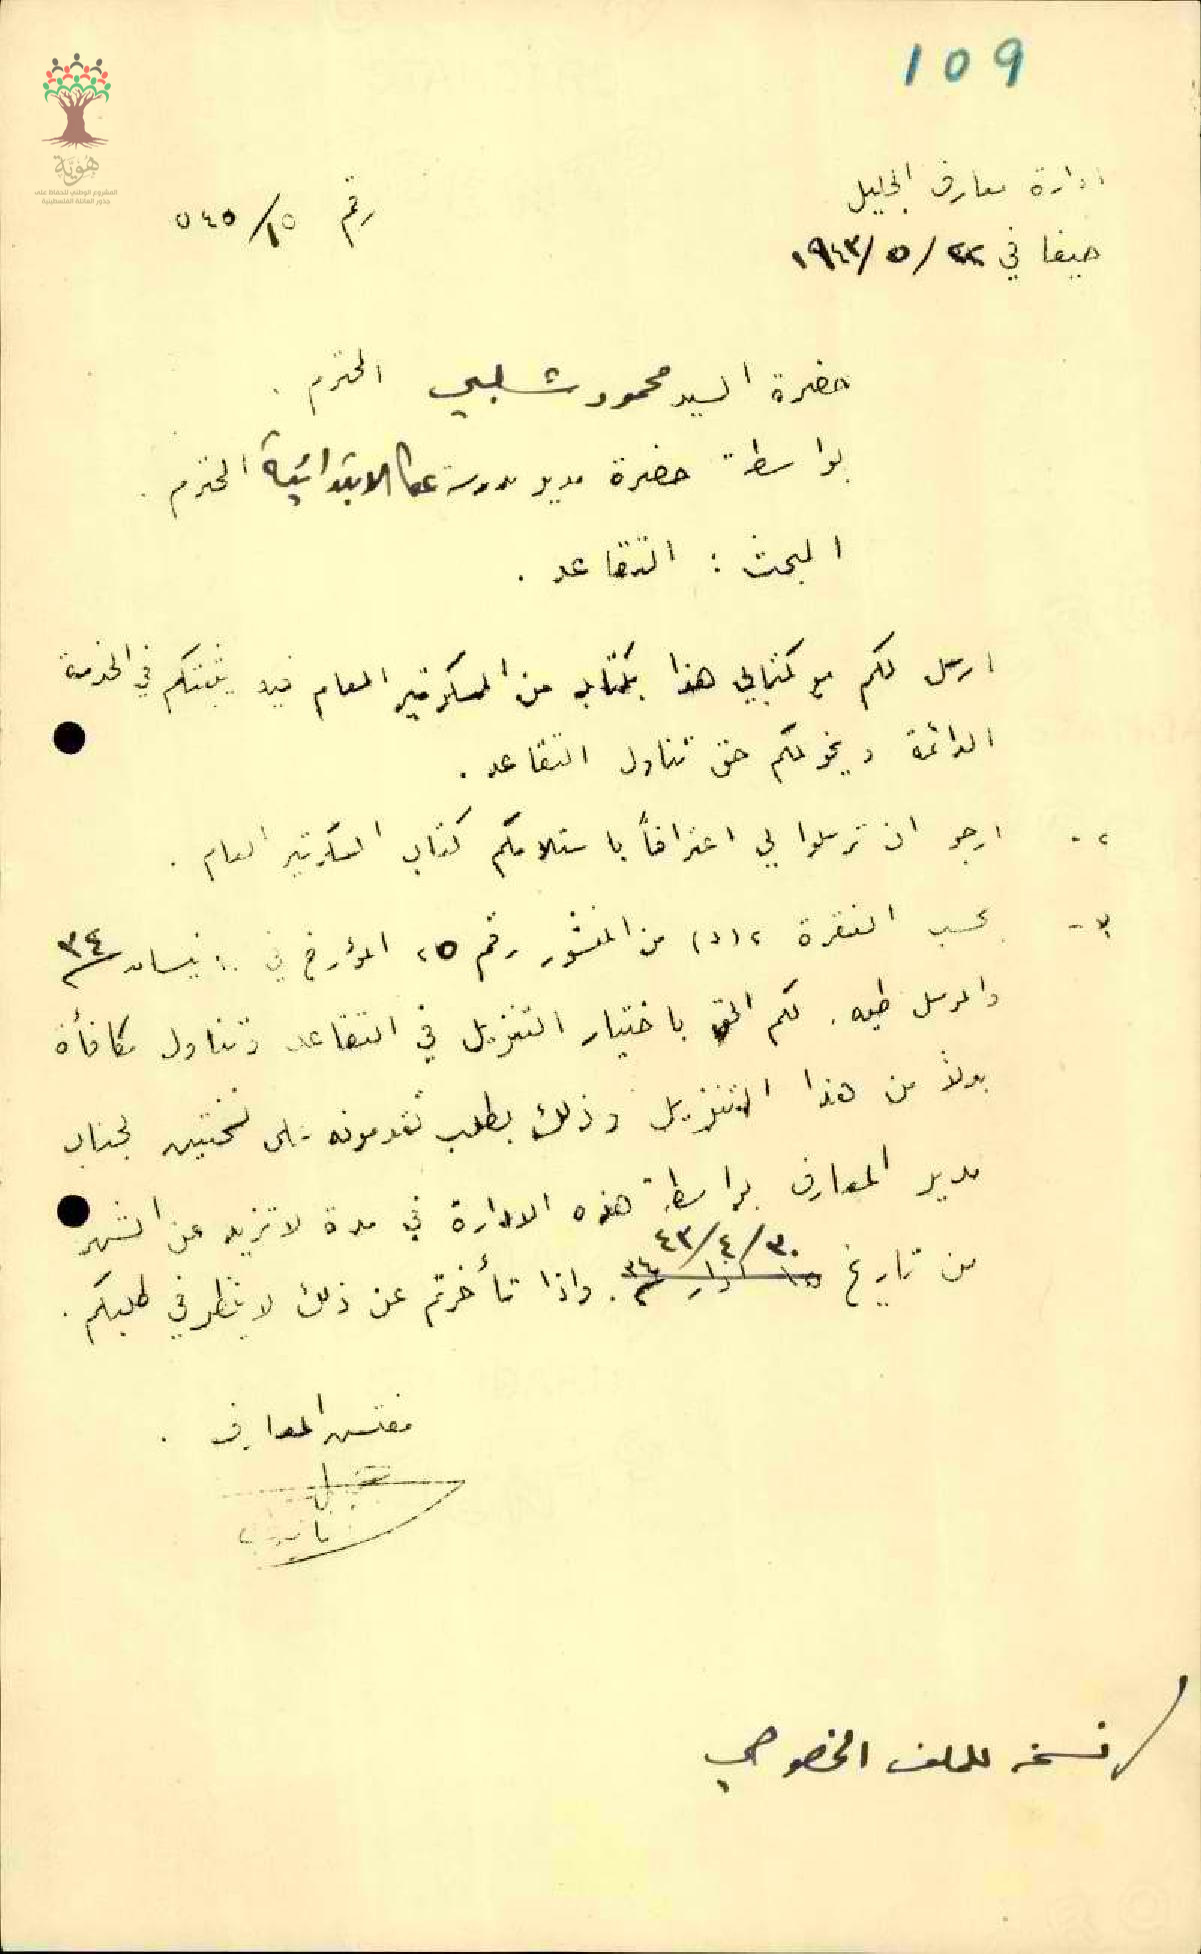 109
هُوِيَّة
المشروع الوطني للحفاظ على
جذور العائلة الفلسطينية
ادارة معارف الجليل
رقم ١٥/٥٤٥
حيفا في ٢٢/٥/١٩٤٣
حضرة السيد محمود شلبي المحترم .
بواسطة حضرة مدير مدرسة عكا الابتدائية المحترم .
المبحث : التقاعد .
ارسل لكم مع كتابي هذا كتاب من السكرتير العام فيه يثبتكم في الخدمة
الدائمة ويخولكم حق تناول التقاعد .
٢- ارجو ان ترسلوا لي اعترافاً باستلامكم كتاب السكرتير العام .
٣- بحسب الفقرة ٢(د) من المنشور رقم ٢٥ المؤرخ في نيسان ٣٤
والمرسل طيه . لكم الحق باختيار التنزيل في التقاعد وتناول مكافأة
بدلاً من هذا التنزيل وذلك بطلب تقدمونه على نسختين لجناب
مدير المعارف بواسطة هذه الادارة في مدة لا تزيد عن الشهر
٣٠/٤/٤٣
من تاريخ ١٥ اذار ٣٤ . واذا تأخرتم عن ذلك لا ينظر في طلبكم .
مفتش المعارف .
نسخة للملف الخصوصي